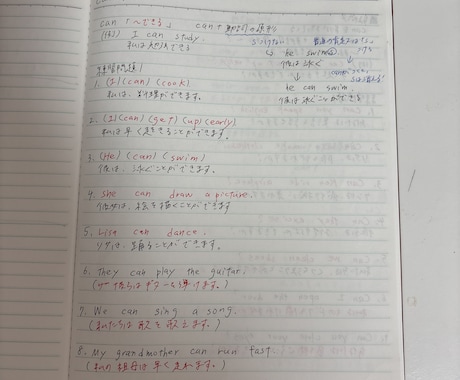 can「〜できる」 can + 動詞の原形
(例) I can study.
私は勉強できる
he swims
彼は泳ぐ
he can swim.
彼は泳ぐことができる
練習問題1
1. (I) (can) (cook)
私は、料理ができます。
2. (I) (can) (get) (up) (early)
私は早く起きることができます。
3. (He) (can) (swim)
彼は、泳ぐことができます。
4. She can draw a picture.
彼女は、絵を描くことができます
5. Lisa can dance.
リサは、踊ることができます。
6. They can play the guitar.
(彼らはギターを弾けます。)
7. We can sing a song.
(私たちは歌を歌えます。)
8. My grandmother can run fast.
(私の祖母は早く走れます。)